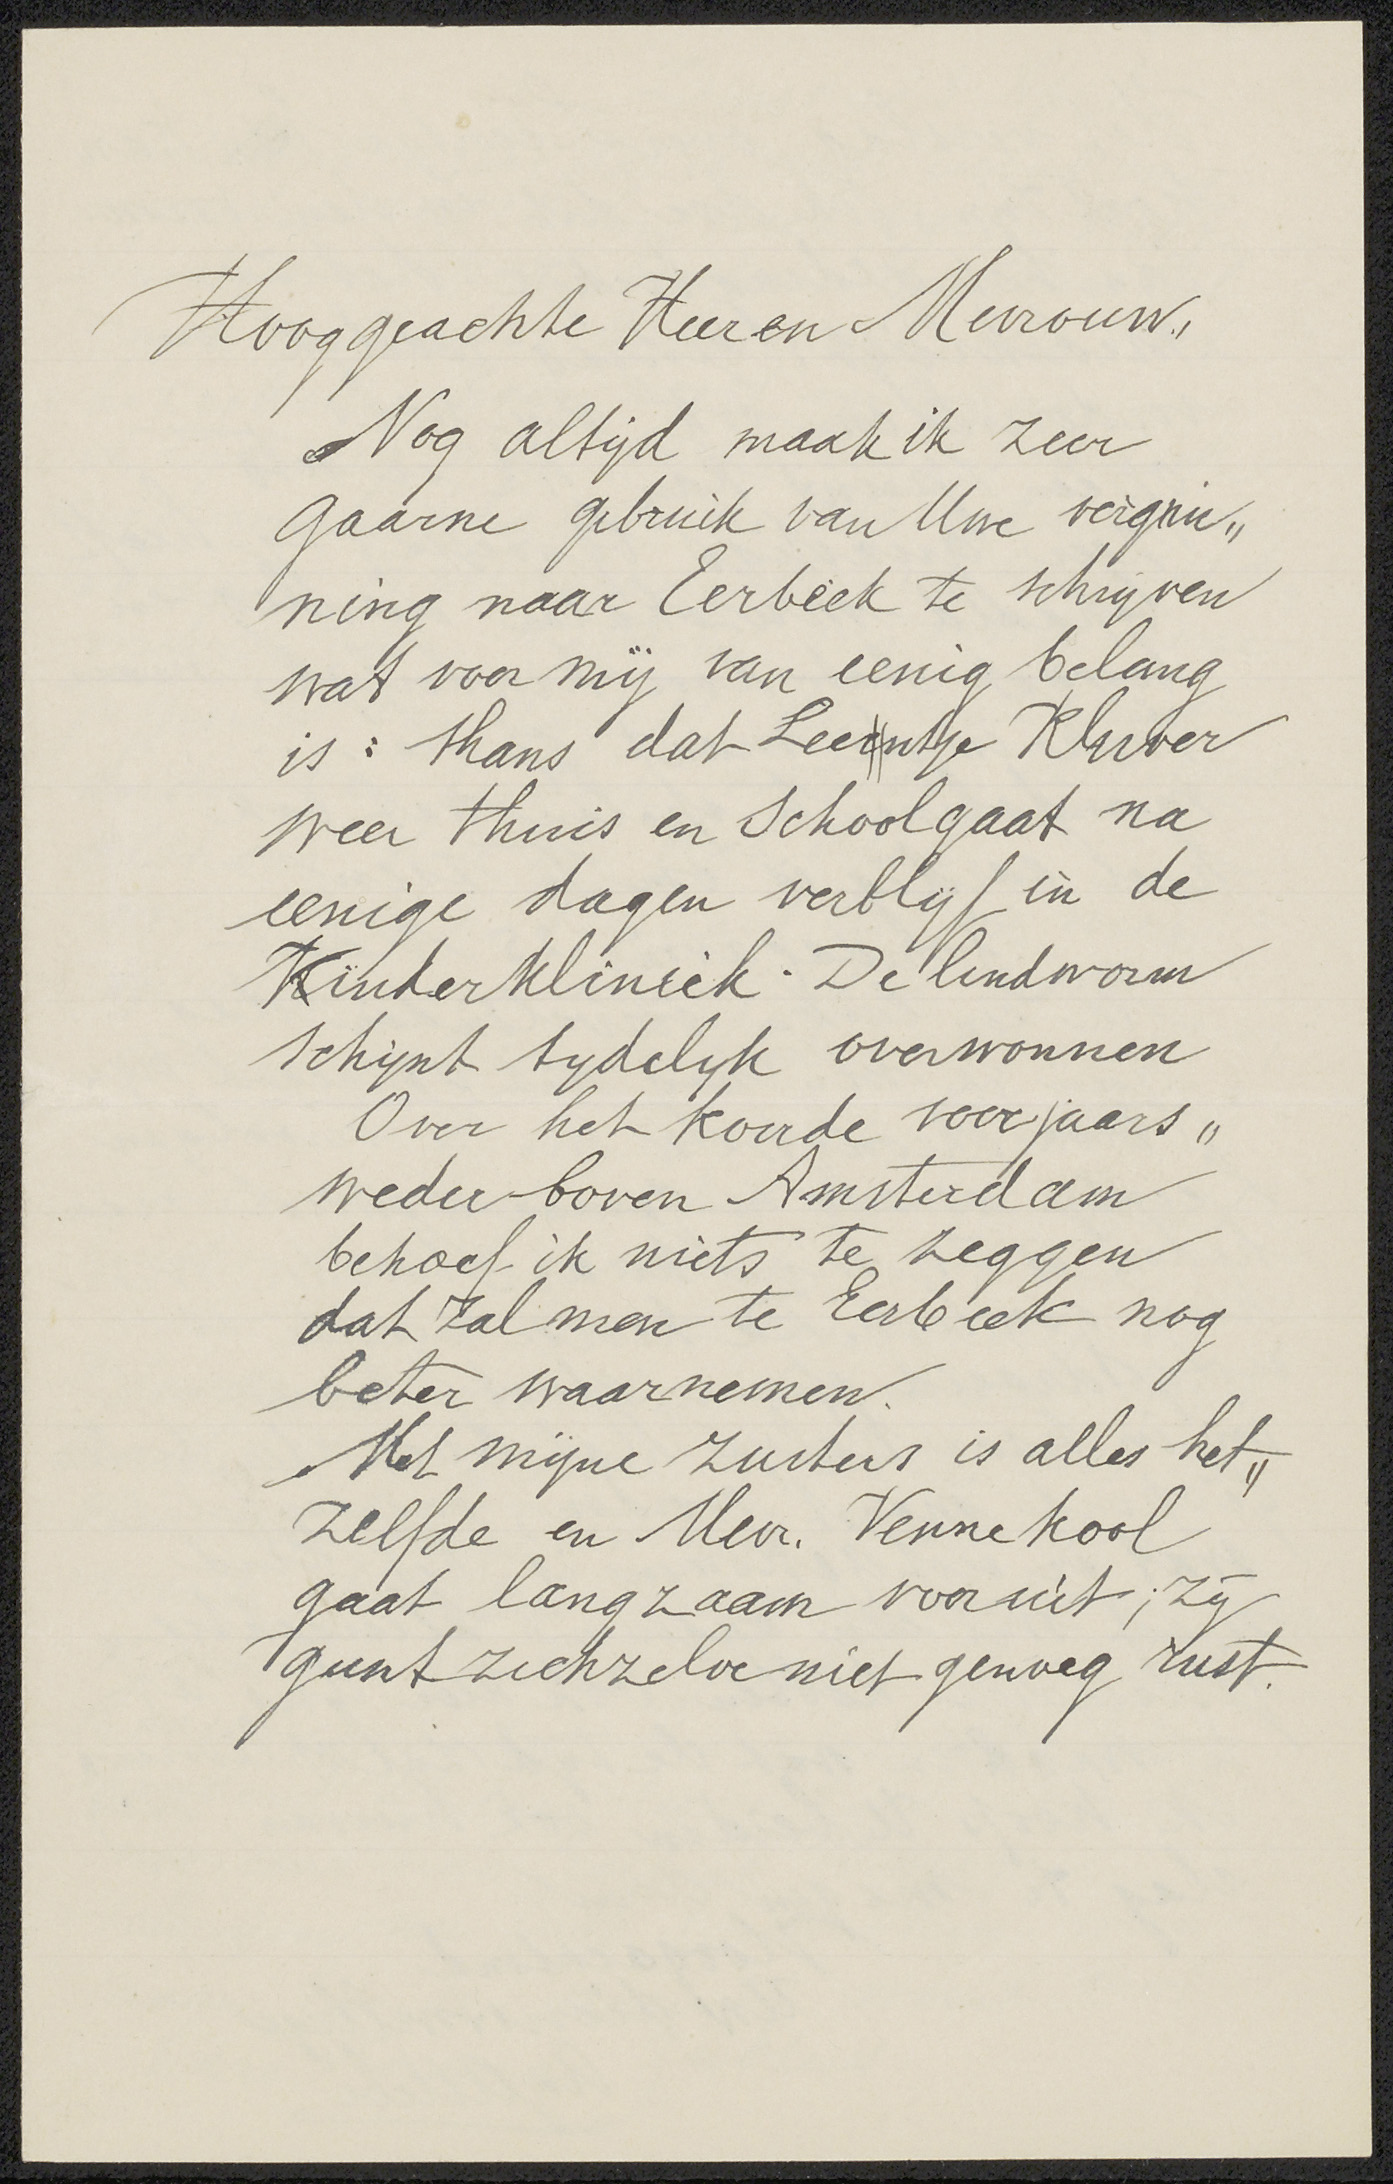 Hooggeachte Heer en Mevrouw.,
Nog altijd maak ik zeer
gaarne gebruik van Uwe vergun„
ning naar Eerbeek te schrijven
wat voor mij van eenig belang
is: thans dat Leentje Kluver
weer thuis en School gaat na
eenige dagen verblijf in de
Kinderkliniek. De lindworm
schijnt tydelyk overwonnen
Over het koude voorjaars„
weder boven Amsterdam
behoef ik niets te zeggen
dat zal men te Eerbeek nog
beter waarnemen.
Met mijne zusters is alles het„
zelfde en Mevr. Vennekool
gaat langzaam vooruit; zij
gunt zichzelve niet genoeg rust.